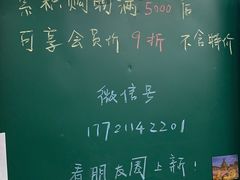 累积购物满5000后
可享会员价9折 不含特价
微信号
17721142201
看朋友圈上新!